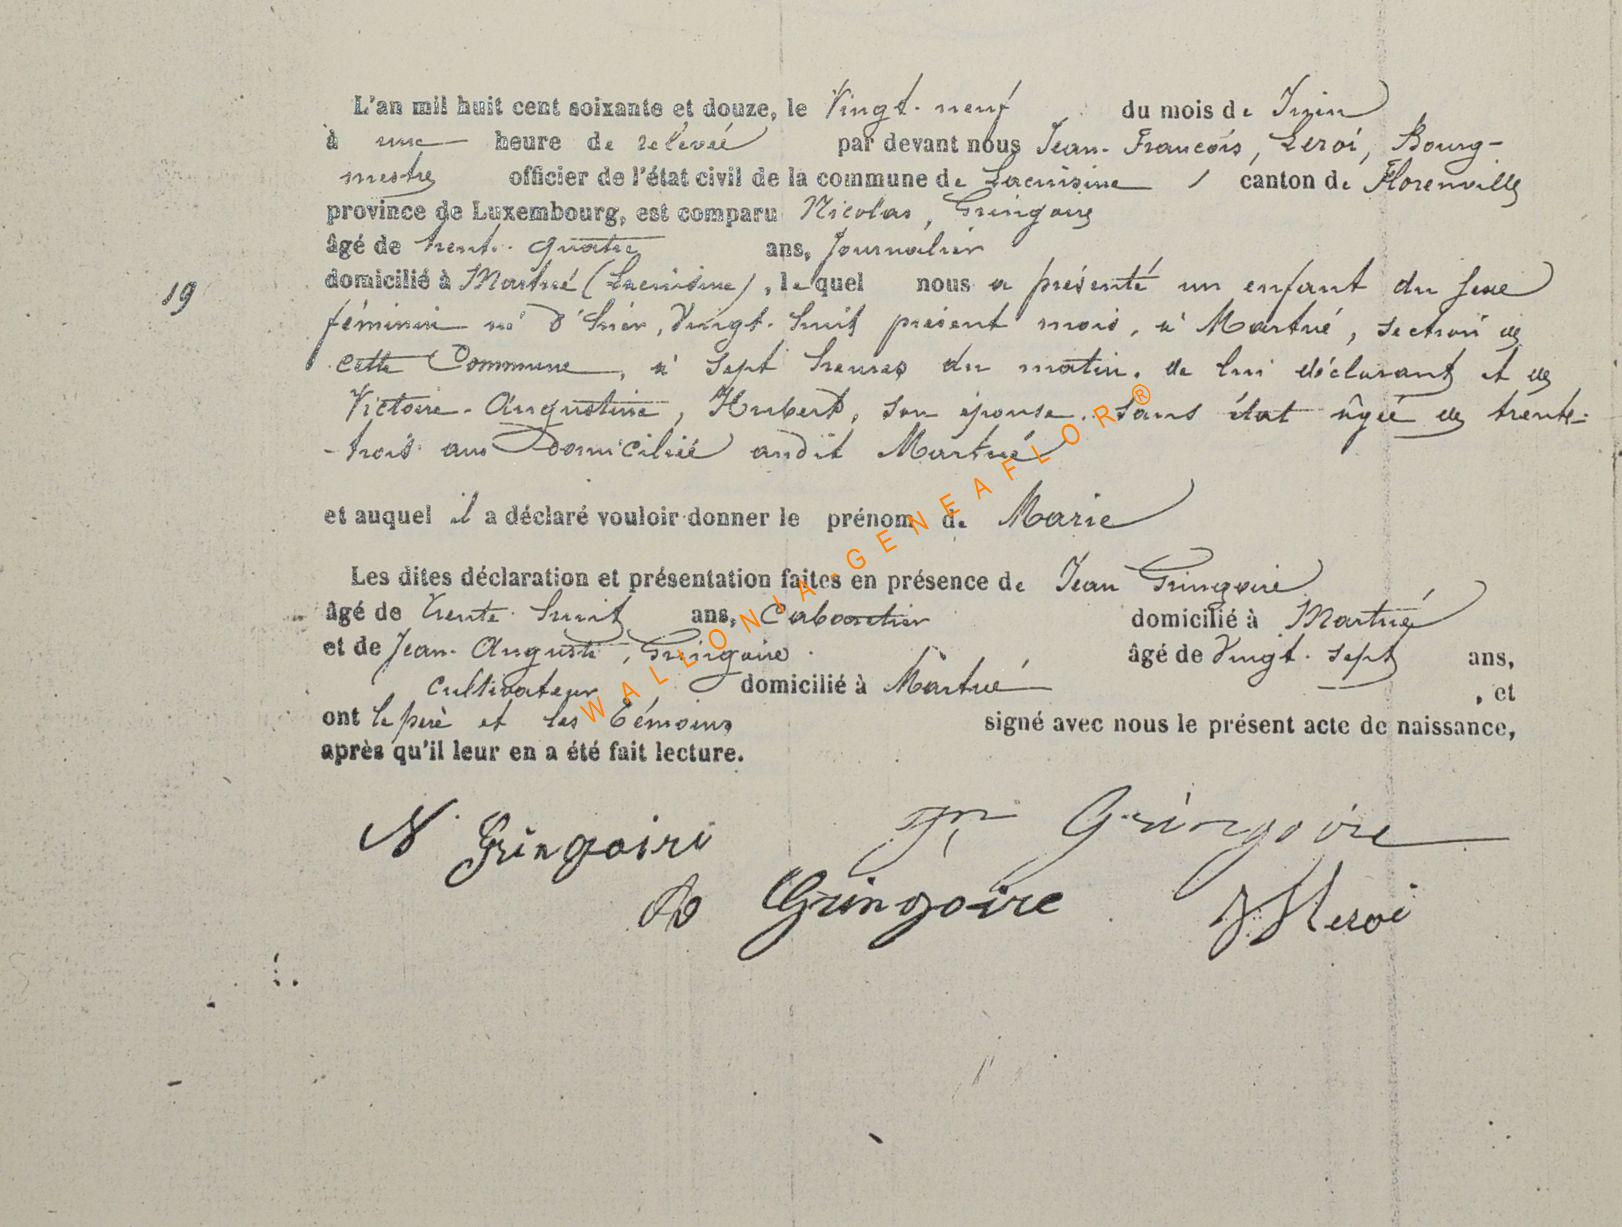 L'an mil huit cent soixante et douze, le Vingt-neuf du mois de Juin
à une heure de relevée par devant nous Jean-François, Leroi, Bourg-
mestre officier de l'état civil de la commune de Lacuisine / canton de Florenville
province de Luxembourg, est comparu Nicolas, Gringoire
âgé de trente-quatre ans, Journalier
19 domicilié à Martué (Lacuisine), lequel nous a présenté un enfant du sexe
féminin né d'hier, Vingt-huit présent mois, à Martué, section de
cette Commune, à sept heures du matin, de lui déclarant et de
Victoire-Augustine, Hubert, son épouse, sans état âgée de trente-
-trois ans Domiciliée audit Martué
et auquel il a déclaré vouloir donner le prénom de Marie
Les dites déclaration et présentation faites en présence de Jean Gringoire
âgé de trente-huit ans, Cabaretier domicilié à Martué
et de Jean-Auguste, Gringoire âgé de Vingt-sept ans,
cultivateur domicilié à Martué , et
ont le père et les témoins signé avec nous le présent acte de naissance,
après qu'il leur en a été fait lecture.
N Gringoire Jn Gringoire
A Gringoire JfLeroi
WALLONIA-GENEAFLOR®